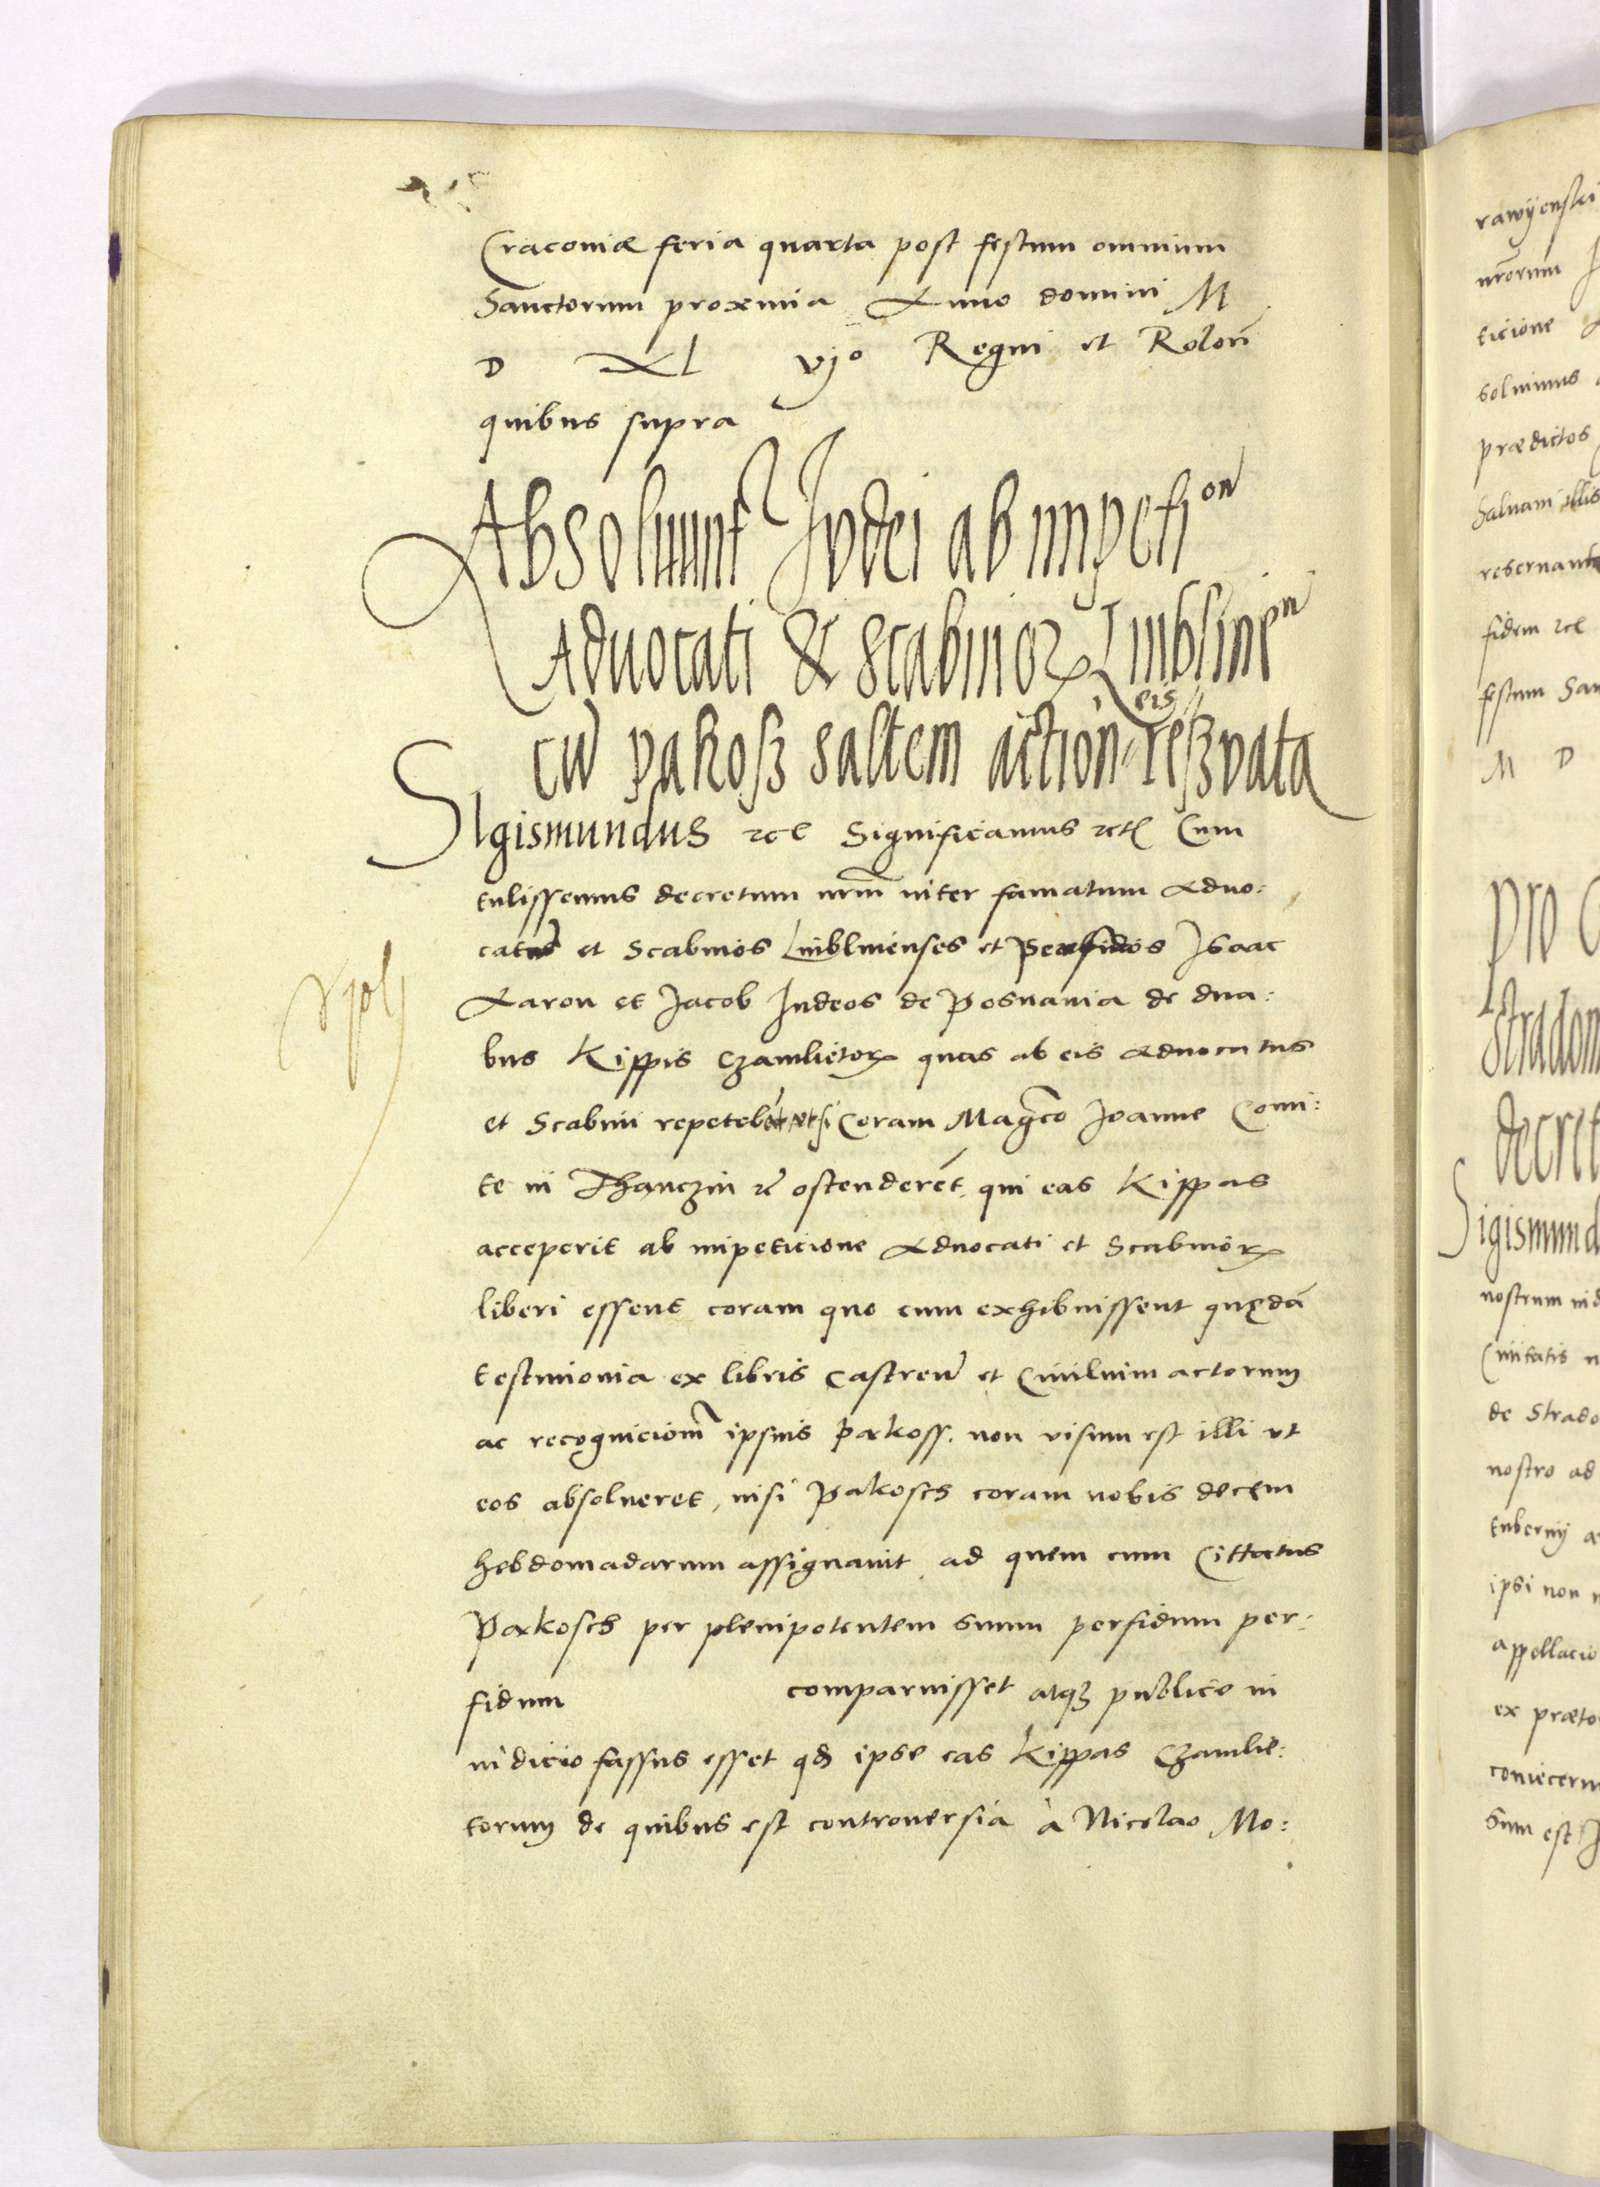 Cracoviæ feria quarta post festum omnium
Sanctorum proxmia Anno domini M
D XL vjo Regni et Rolorn
quibus supra
Absoluunt Judei ab impetion
Advocati & scabinor Lublinen
cu pakosz saltem action eis reszvata
Sigismundus rcl Significamus retl Cum
tulissemus decretum nrm inter famatum Advo:
catus et Scabinos Lublinenses et Perfidos Isaac
Aaron et Jacob Judeos de Posnania de dua:
bus Kippis Czamlietor quas ab eis Advocatus
et Scabini repeteba ut si Coram Magco Joanne Comi:
te in Thanczin rc ostenderet qui eas Kippas
acceperit ab impeticione Advocati et Scabinor
liberi essent coram quo cum exhibuissent quędā
testimonia ex libris Castren et Civilium actorum
ac recognicionm ipsius Pakoss. non visum est illi ut
eos absolveret, nisi Pakosch coram nobis decem
hebdomadarum assignavit ad quem cum Cittatus
Pakosch per plenipotentem suum perfidum per:
fidum comparuisset atqz publice in
iudicio fassus esset qd ipse eas Kippas Czamlie:
torum de quibus est controversia à Nicolao Mo:
rawÿenski
nrorum
ticione
solvimus
prædictos
Salvam illis
reservant
fidem rcl
festum San
M D
pro
Stradom
decret
Sigismund
nostrum
Civitatis
de Strado
nostro ad
ipsi non
appellacio
ex præto
coniecerm
Sum est